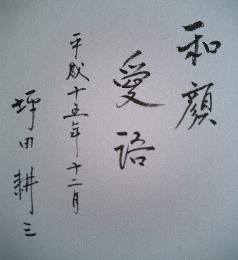 和顔
愛語
平成十五年十二月
坪田耕三